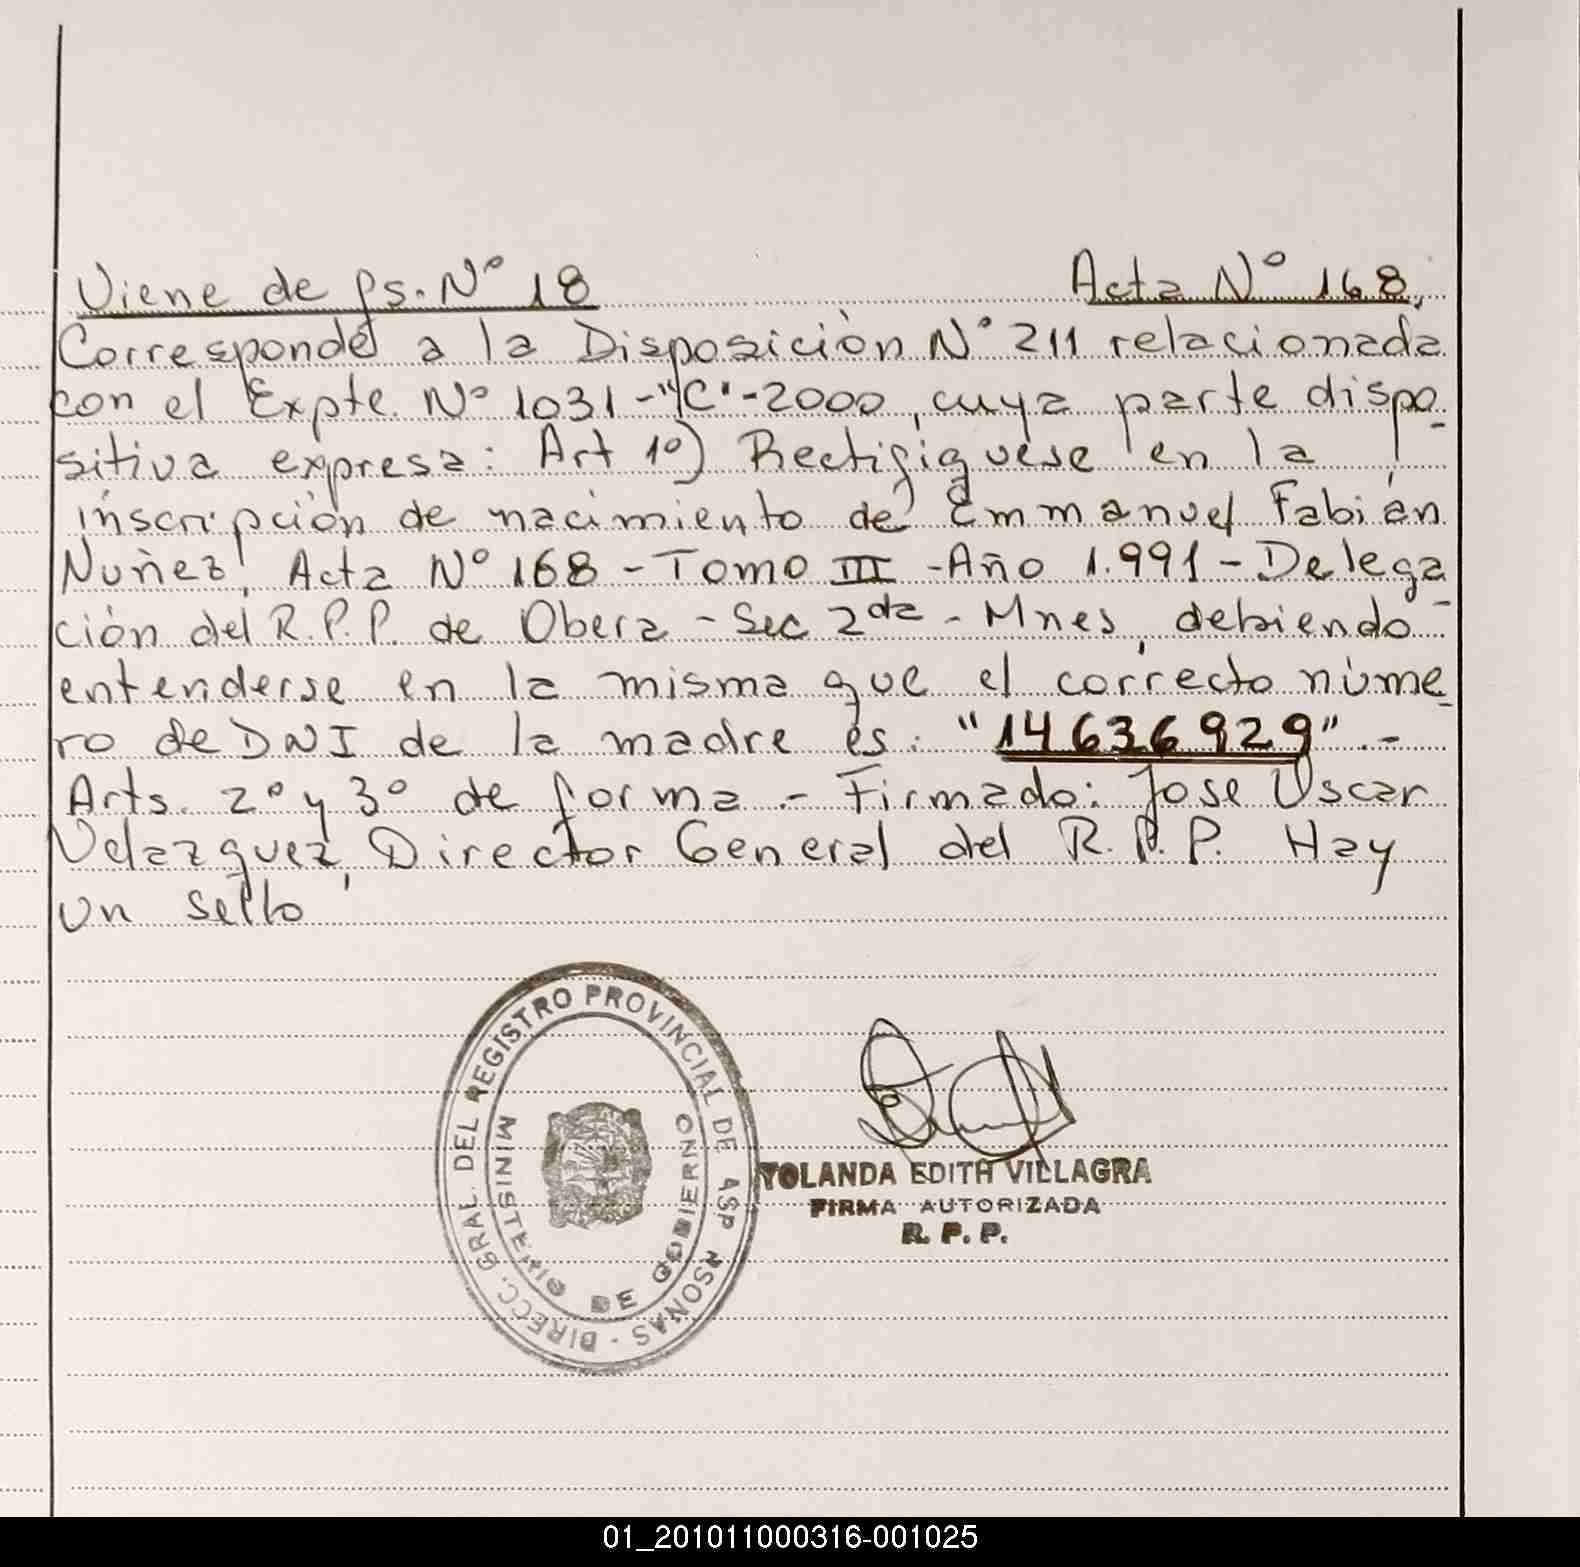 Viene de fs. Nº 18 Acta Nº 168.
Corresponde a la Disposición Nº 211 relacionada
con el Expte. Nº 1031-"C"-2000, cuya parte dispo-
sitiva expresa: Art 1º) Rectifíquese en la
inscripción de nacimiento de Emmanuel Fabián
Nuñez, Acta Nº 168 - Tomo III - Año 1.991 - Delega-
ción del R.P.P. de Obera - Sec 2da - Mnes, debiendo
entenderse en la misma que el correcto núme-
ro de DNI de la madre es: "14636929".-
Arts. 2º y 3º de forma.- Firmado: Jose Oscar
Velazquez, Director General del R.P.P. Hay
un sello
DIRECC. GRAL. DEL REGISTRO PROVINCIAL DE
MINISTERIO DE GOBIERNO
YOLANDA EDITH VILLAGRA
FIRMA AUTORIZADA
R. P. P.
01_201011000316-001025